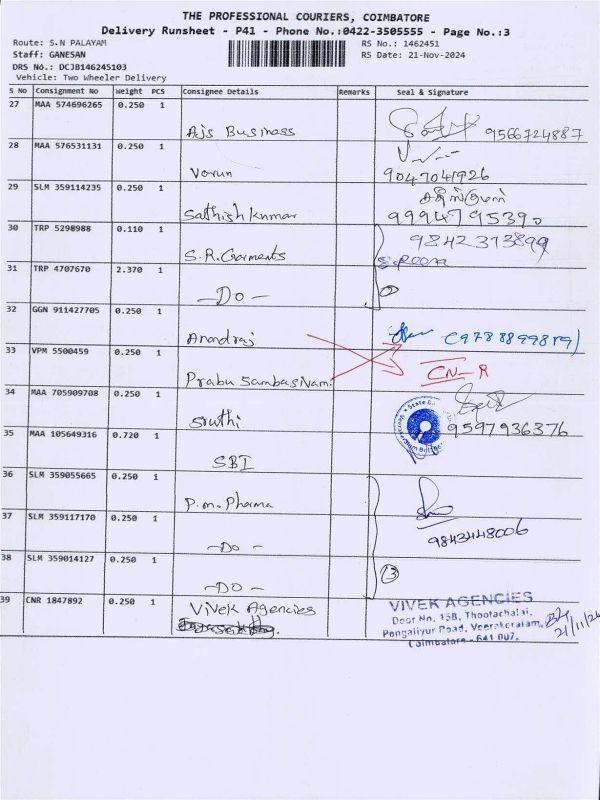 THE PROFESSIONAL COURIERS, COIMBATORE
Delivery Runsheet - P41 - Phone No.:0422-3505555 - Page No.:3
Route: S.N PALAYAM RS No.: 1462451
Staff: GANESAN RS Date: 21-Nov-2024
DRS No.: DCJB146245103
Vehicle: Two Wheeler Delivery
S No Consignment No Weight PCS Consignee Details Remarks Seal & Signature
27 MAA 574696265 0.250 1
Ajs Business 9566724887
28 MAA 576531131 0.250 1
Varun 9047041926
29 SLM 359114235 0.250 1 சதீஸ்குமார்
Sathishkumar 9994795390
30 TRP 5298988 0.110 1 9842373899
S.R.Garments
31 TRP 4707670 2.370 1
-DO- 2
32 GGN 911427705 0.250 1
Anandraj (9788899819)
33 VPM 5500459 0.250 1 CN-R
Prabu Sambasivam.
34 MAA 705909708 0.250 1
Sruthi 9597936376
35 MAA 105649316 0.720 1
SBI
36 SLM 359055665 0.250 1
P.m. Pharma
37 SLM 359117170 0.250 1 9843448006
-DO-
38 SLM 359014127 0.250 1 3
-DO-
39 CNR 1847892 0.250 1 Vivek Agencies VIVEK AGENCIES
Door No. 15B, Thootachalai,
Pongaliyur Road, Veerakeralam,
Coimbatore - 641 007. 21/11/24